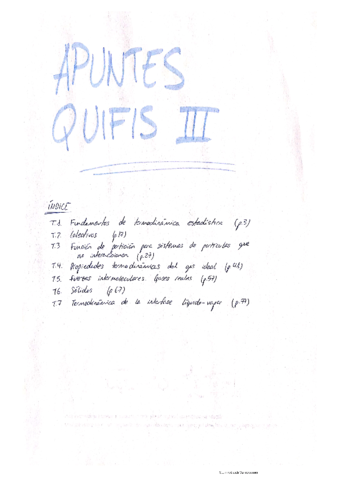 APUNTES
QUIFIS III
ÍNDICE
T.1. Fundamentos de termodinámica estadística (p.3)
T.2 Colectivos
T.3 Función de partición para sistemas de partículas que
no interaccionan (p.27)
T.4. Propiedades termodinámicas del gas ideal (p.42)
T5. Fuerzas intermoleculares. Gases reales (p.57)
T6. Sólidos (p.67)
T.7 Termodinámica de la interfase líquido-vapor (p.77)